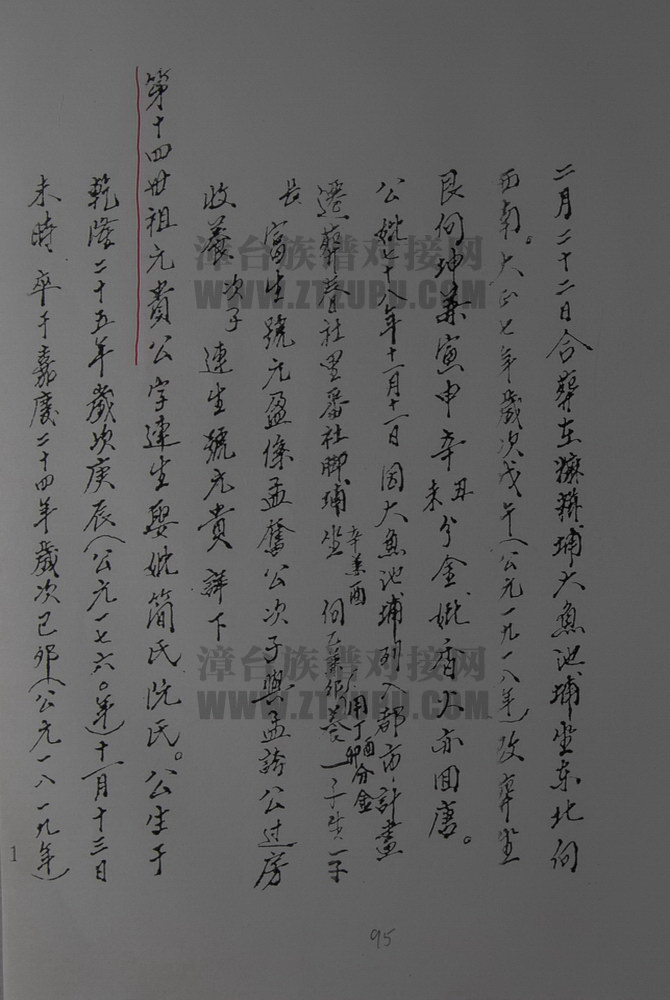 二月二十二日合葬在 埔大魚池埔坐东北向
西南。大正七年歲次戊午(公元一九一八年)改葬坐
艮向坤兼寅申辛丑 辛未分金,妣香火亦回唐。
公妣七十八年十一月十一日因大魚池埔列入都市計畫
遷葬 社里番社脚埔坐辛兼酉 向乙兼卯 用丁酉 丁卯 分金 養一子生一子
長 富生號元盈係孟 公次子與孟誇公过房
收養 次子 連生號元貴 詳下
第十四世祖元貴公字連生娶妣簡氏阮氏。公生于
乾隆二十五年歲次庚辰(公元一七六〇年)十一月十三日
未時 卒于嘉慶二十四年歲次己卯(公元一八一九年)
1
95
漳台族谱对接网
WWW.ZTZUPU.COM
漳台族谱对接网
WWW.ZTZUPU.COM